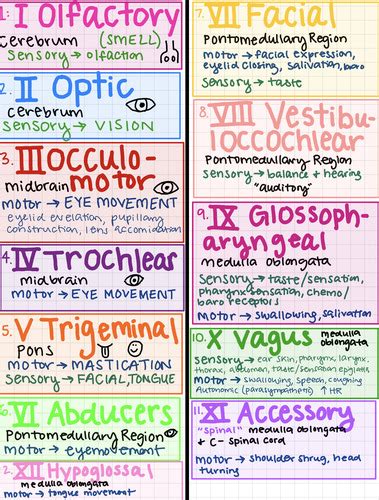 1: I Olfactory
cerebrum (SMELL)
Sensory → olfaction
2. II Optic
cerebrum
sensory → VISION
3. III Occulo-
motor
midbrain
motor → EYE MOVEMENT
eyelid elevation, pupillary
construction, lens accomidation
4. IV Trochlear
midbrain
motor → EYE MOVEMENT
5. V Trigeminal
pons
motor → MASTICATION
Sensory → FACIAL, TONGUE
6. VI Abducers
Pontomedullary Region
motor → eyemovement
12. XII Hypoglossal
medulla oblongata
motor → tongue movement
7. VII Facial
Pontomedullary Region
motor → facial expression,
eyelid closing, salivation, baro
sensory → taste
8. VIII Vestibu-
loccochlear
Pontomedullary Region
sensory → balance + hearing
"auditory"
9. IX Glossoph-
aryngeal
medulla oblongata
Sensory → taste/sensation,
pharynx sensation, chemo/
baro receptors
Motor → swallowing, salivation
10. X Vagus medulla
oblongata
sensory → ear skin, pharynx, larynx,
thorax, abdomen, taste/sensation epiglottis
motor → swallowing, speech, coughing
Autonomic (parasympathetic) ↑ HR
11. XI Accessory
"spinal" medulla oblongata
+ C-spinal cord
motor → shoulder shrug, head
turning